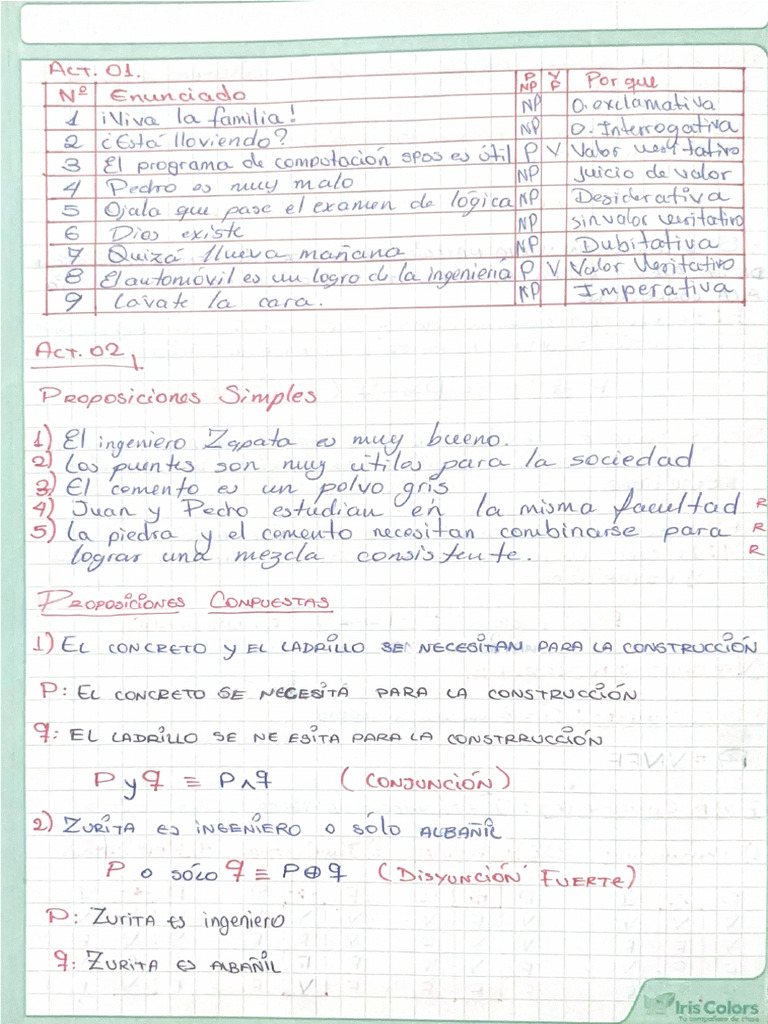 Act. 01.
Nº Enunciado P NP V F Por que
1 ¡Viva la familia! NP O. exclamativa
2 ¿Está lloviendo? NP O. Interrogativa
3 El programa de computación spss es útil P V Valor veritativo
4 Pedro es muy malo NP juicio de valor
5 Ojala que pase el examen de lógica NP Desiderativa
6 Dios existe NP sin valor veritativo
7 Quizá llueva mañana NP Dubitativa
8 El automóvil es un logro de la ingeniería P V Valor Veritativo
9 Lávate la cara. NP Imperativa
Act. 02
Proposiciones Simples
1) El ingeniero Zapata es muy bueno.
2) Los puentes son muy útiles para la sociedad
3) El cemento es un polvo gris
4) Juan y Pedro estudian en la misma facultad R
5) La piedra y el cemento necesitan combinarse para R
lograr una mezcla consistente. R
PROPOSICIONES COMPUESTAS
1) EL CONCRETO Y EL LADRILLO SE NECESITAN PARA LA CONSTRUCCIÓN
P: EL CONCRETO SE NECESITA PARA LA CONSTRUCCIÓN
q: EL LADRILLO SE NE ESITA PARA LA CONSTRRUCCIÓN
P y q ≡ P∧q (CONJUNCIÓN)
2) ZURITA ES INGENIERO O SÓLO ALBAÑIL
P O SÓLO q ≡ P⊕q (DISYUNCIÓN FUERTE)
P: ZURITA ES ingeniero
q: ZURITA ES ALBAÑIL
Iris Colors
Tu compañero de clase